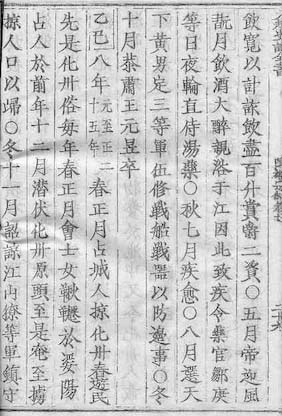 飲寛以計詐飲盡百升賞爵二資○五月帝迎風
翫月飲酒大醉親浴于江因此致疾令藥官鄒庚
等日夜輪直侍湯藥○秋七月疾愈○八月選天
下黄男定三等軍伍修戰艦戰器以防邊事○冬
十月恭肅王元昱卒
乙巳八年元至正二十五年春正月占城人掠化州春遊民
先是化州俗每年春正月會士女鞦韆於婆陽
占人於前年十二月潜伏化州原頭至是奄至擄
掠人口以歸○冬十一月詔諒江内寮等軍鎮守